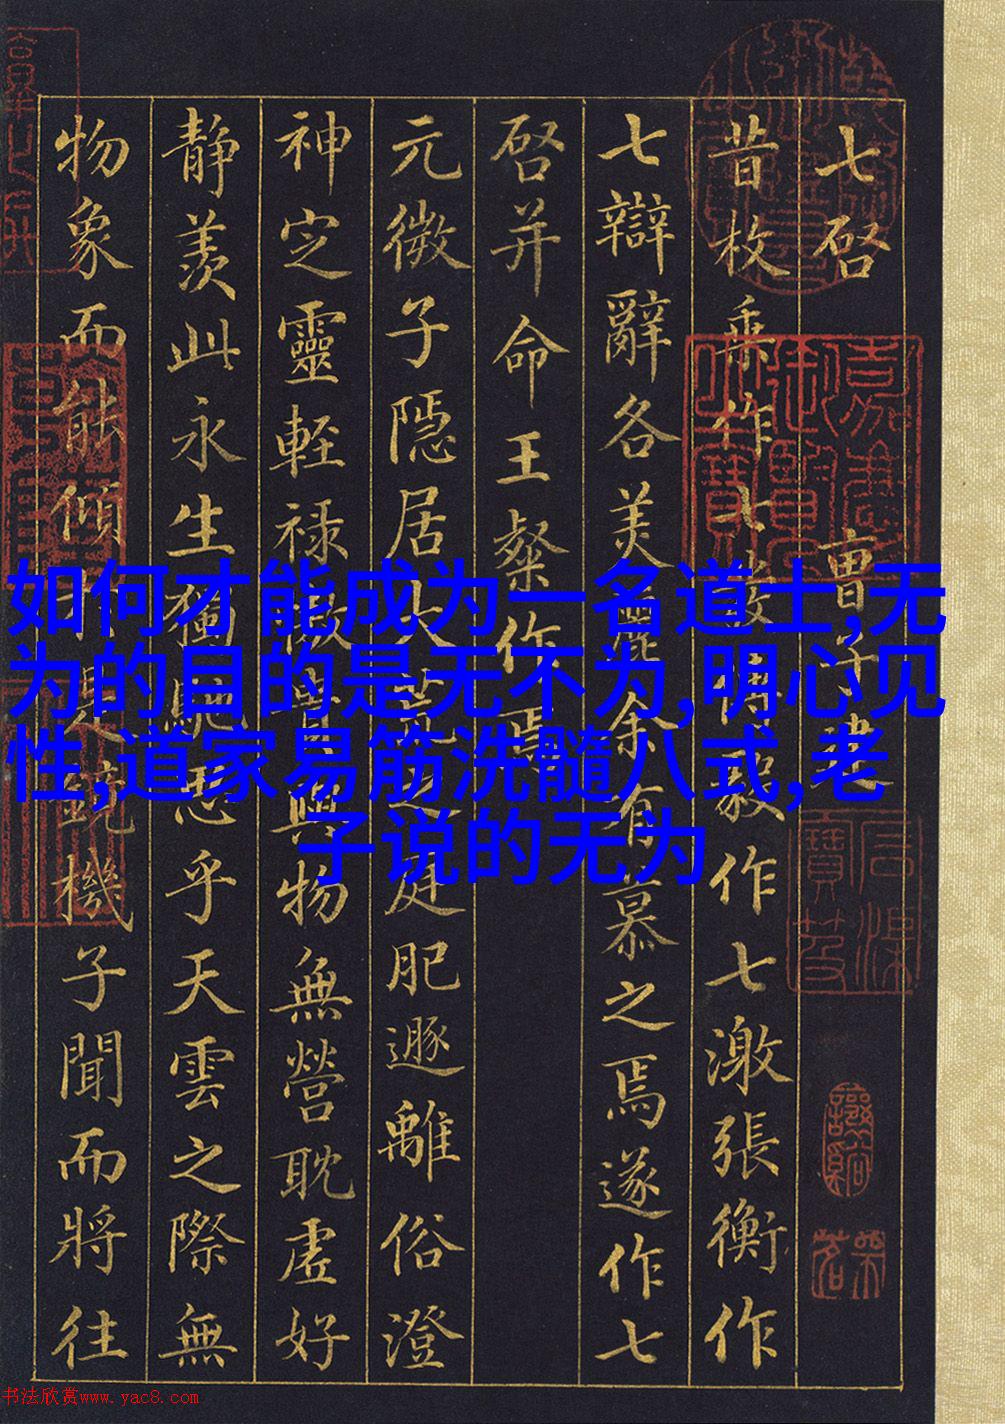 七啓 曹子建
昔枚乘作七發傅毅作七激張衡作
七辯辭各美麗余有慕之焉遂作七
啓并命王粲作焉
元微子隱居大荒之庭肥遯離俗澄
神定靈輕祿傲貴與物無營耽虛好
靜羨此永生獨馳思乎天雲之際無
物象而能傾於是鏡機子聞而將往
如何才能成为一名道士,无
为的目的是无不为,明心见
性,道家易筋洗髓八式,老
子说的无为
书法欣赏www.yac8.com